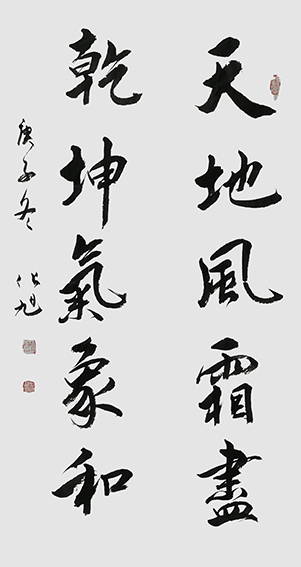 天地風霜盡
乾坤氣象和
庚子冬 化旭